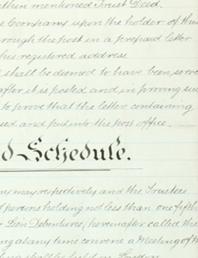 within mentioned Trust Deed.
e Company upon the holder of this
through the post in a prepaid letter
his registered address
shall be deemed to have been served
after it is posted and in proving such
to prove that the letter containing
ed and put into the post office.
d Schedule.
may respectively and the Trustees
persons holding not less than one fifth
hereinafter called the
at any time convene a Meeting of th
shall be held in London